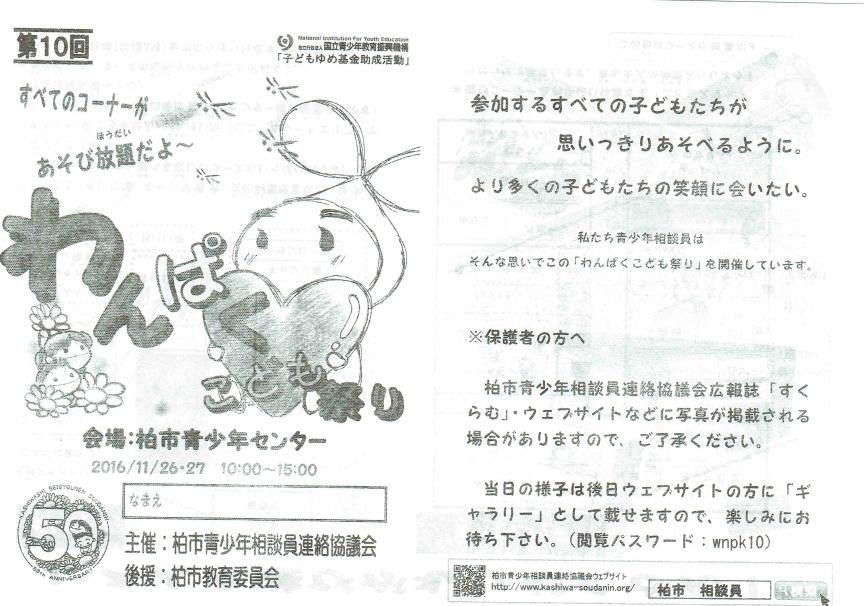 第10回
National Institution For Youth Education
独立行政法人 国立青少年教育振興機構
「子どもゆめ基金助成活動」
すべてのコーナーが
ほうだい
あそび放題だよ～
わんぱく
こども祭り
会場:柏市青少年センター
2016/11/26・27 10:00～15:00
なまえ
KASHIWASHI SEISYOUNEN SOUDANIN
50
50TH ANNIVERSARY
主催：柏市青少年相談員連絡協議会
後援：柏市教育委員会
参加するすべての子どもたちが
思いっきりあそべるように。
より多くの子どもたちの笑顔に会いたい。
私たち青少年相談員は
そんな思いでこの「わんぱくこども祭り」を開催しています。
※保護者の方へ
柏市青少年相談員連絡協議会広報誌「すく
らむ」・ウェブサイトなどに写真が掲載される
場合がありますので、ご了承ください。
当日の様子は後日ウェブサイトの方に「ギ
ャラリー」として載せますので、楽しみにお
待ち下さい。（閲覧パスワード：wnpk10）
柏市青少年相談員連絡協議会ウェブサイト
http://www.kashiwa-soudanin.org/
柏市 相談員
検索